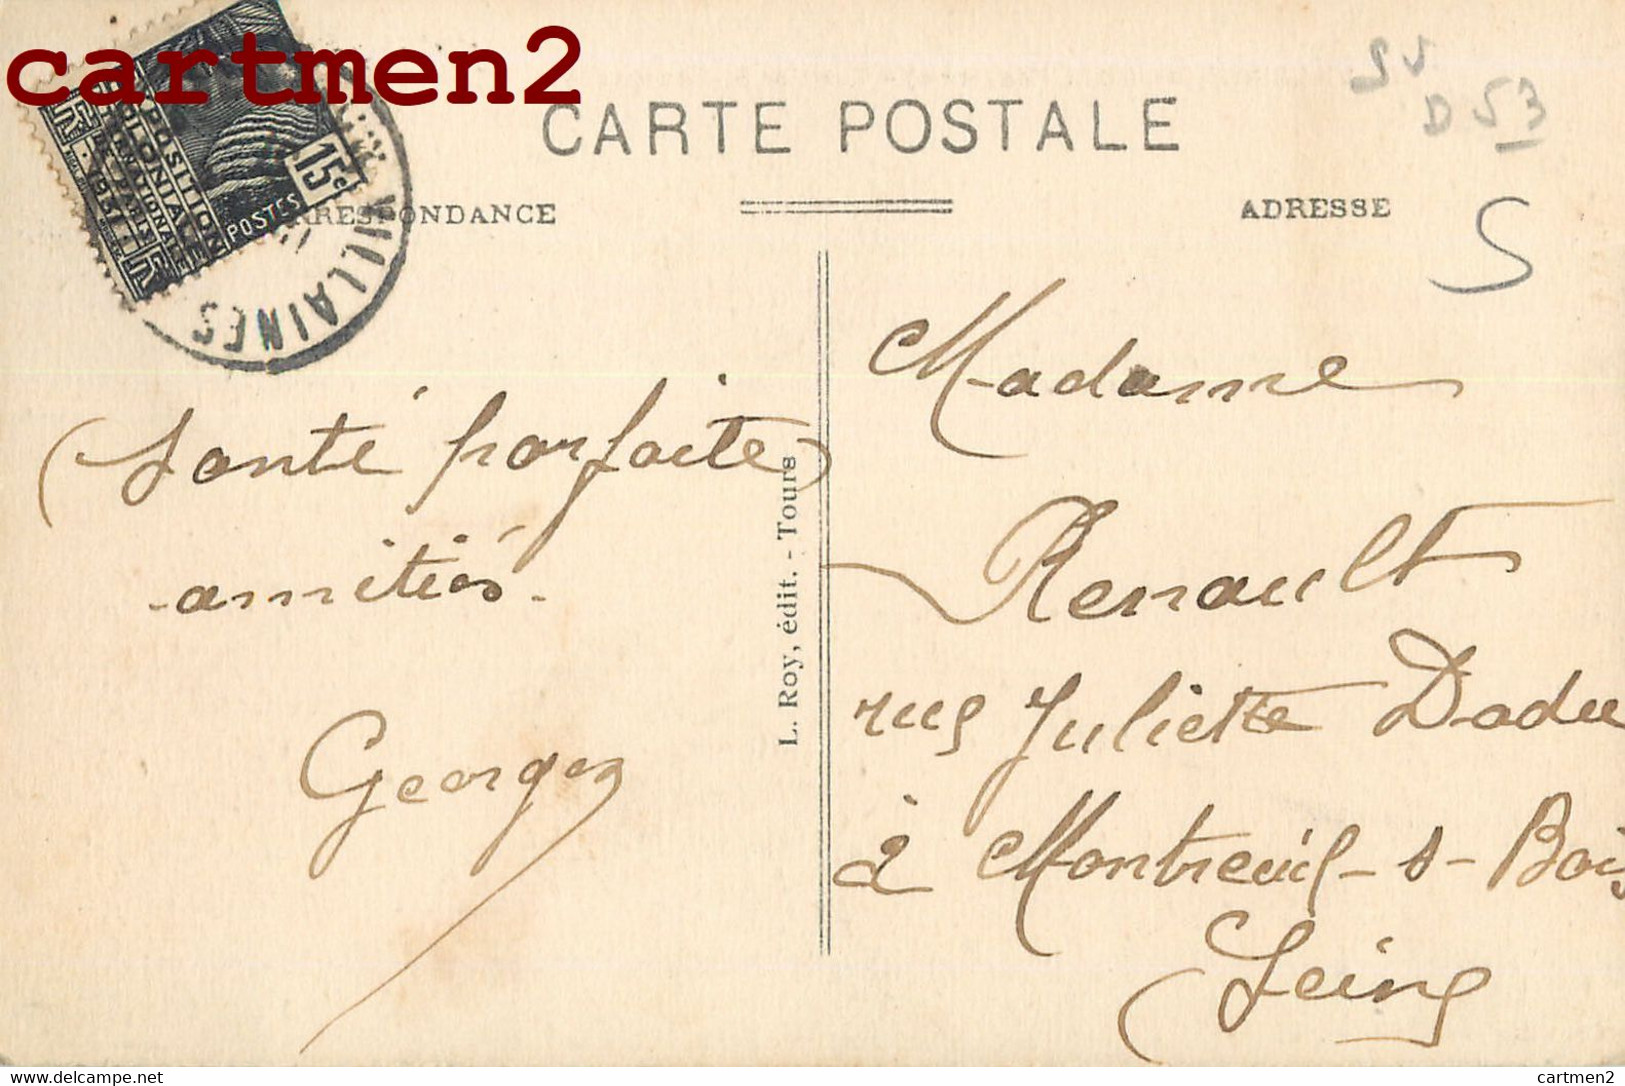 cartmen2
CARTE POSTALE
SV
D 53
RRESPONDANCE
ADRESSE
S
EXPOSITION
COLONIALE
INTERNATIONALE
DE PARIS
1931
POSTES
15c
VILLAINES
Santé parfaite
amitiés.
Georges
L. Roy, édit. - Tours
Madame
Renault
rue Juliette Dodu
à Montreuil-s-Bois
Seine
delcampe.net
cartmen2